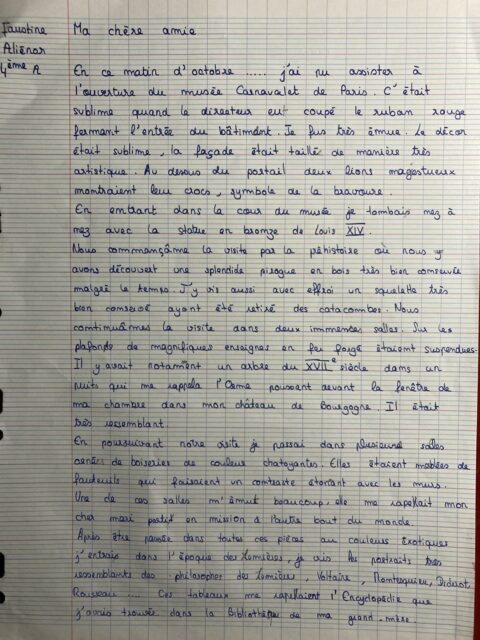 Faustine
Aliénor
4ème A
Ma chère amie
En ce matin d'octobre ..... j'ai pu assister à
l'ouverture du musée Carnavalet de Paris. C'était
sublime quand le directeur eut coupé le ruban rouge
fermant l'entrée du bâtiment. Je fus très émue. Le décor
était sublime, la façade était taillé de manière très
artistique. Au dessus du portail deux lions magestueux
montraient leur crocs, symbole de la bravoure.
En entrant dans la cour du musée je tombais nez à
nez avec la statue en bronze de Louis XIV.
Nous commançâme la visite par la préhistoire où nous y
avons découvert une splendide pirogue en bois très bien conservée
malgré le temps. J'y vis aussi avec effroi un squelette très
bien conservé ayant été retiré des catacombes. Nous
continuâmes la visite dans deux immenses salles. Sur les
plafonds de magnifiques enseignes en fer forgé étaient suspendues.
Il y avait notamment un arbre du XVII e siècle dans un
puits qui me rappela l'Orme poussant devant la fenêtre de
ma chambre dans mon château de Bourgogne. Il était
très ressemblant.
En poursuivant notre visite je passai dans plusieurs salles
ornées de boiseries de couleur chatoyantes. Elles étaient meublées de
fauteuils qui faisaient un contraste étonant avec les murs.
Une de ces salles m'émut beaucoup, elle me rapellait mon
cher mari partit en mission à l'autre bout du monde.
Après être passée dans toutes ces pièces au couleurs éxotiques
j'entrais dans l'époque des Lumières, je vis les portraits très
ressemblants des philosophes des Lumières, Voltaire, Montesquieu, Diderot,
Rousseau .... Ces tableaux me rapellaient l'Encyclopédie que
j'avais trouvée dans la Bibliothèque de ma grand-mère.